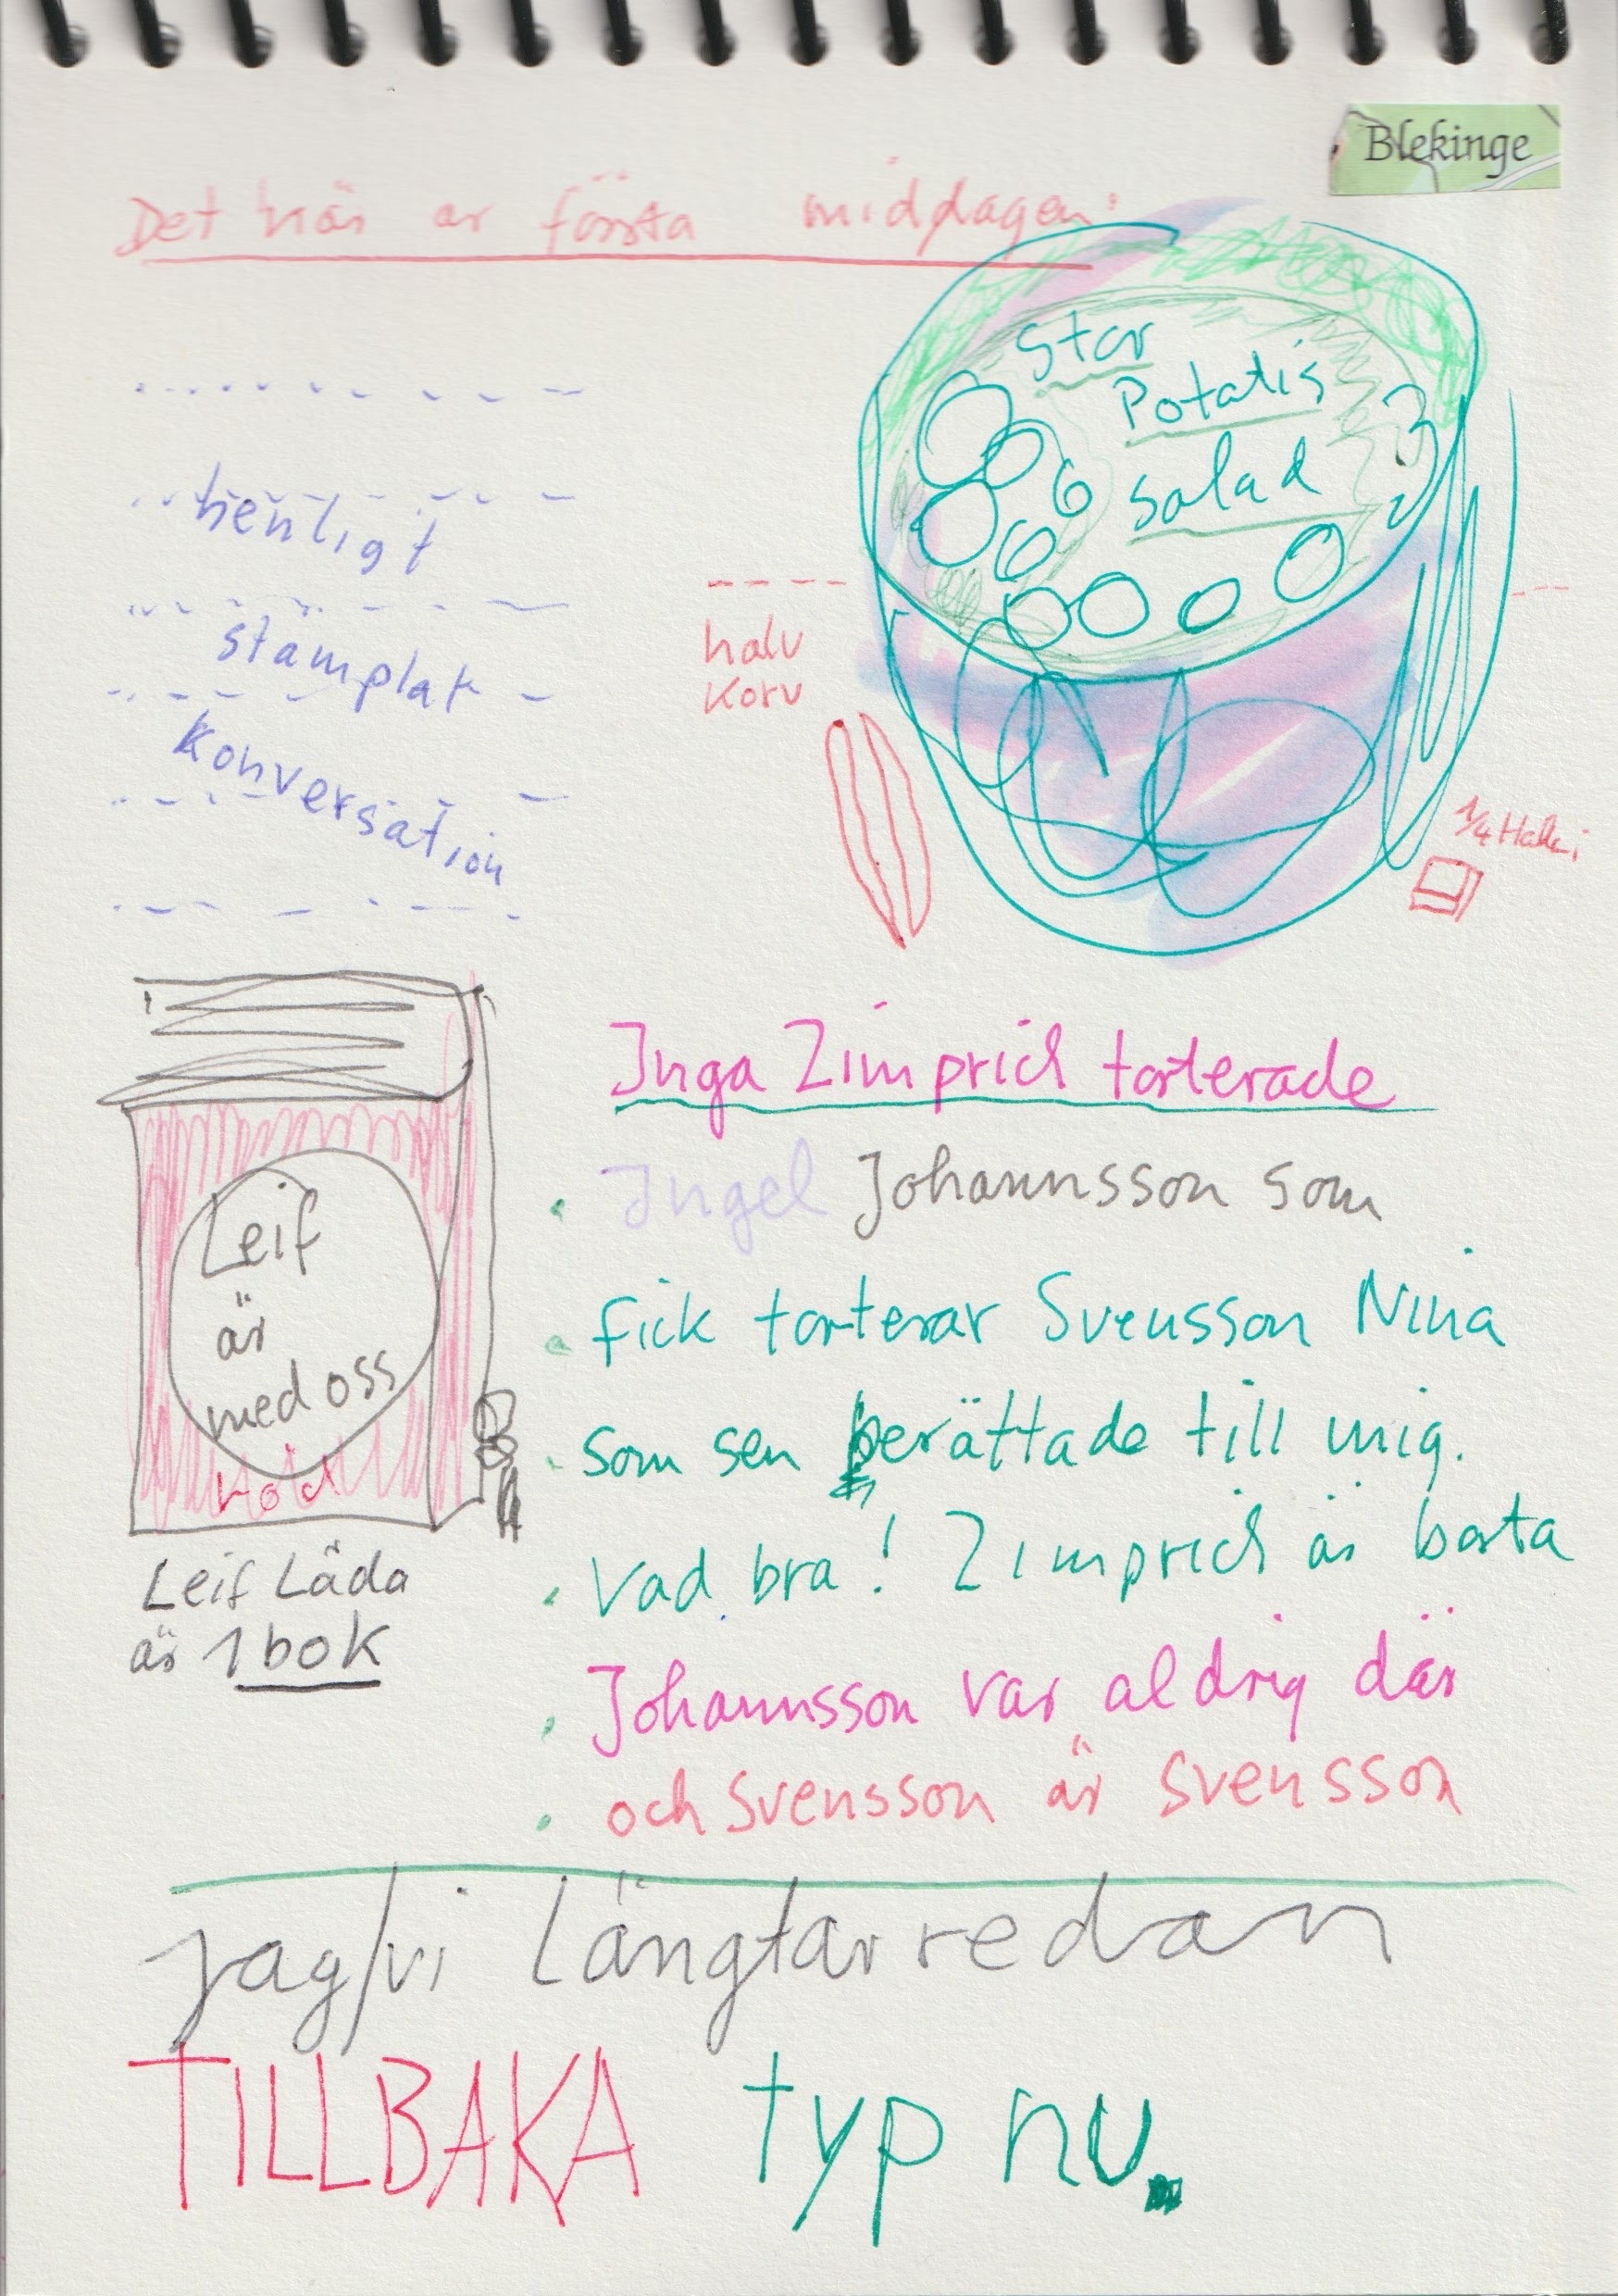 Blekinge
Det här är första middagen:
Stor
Potatis
salad
hemligt
stämplat
Konversation
halv
Korv
Inga Zimprich torterade
Ingel Johannsson som
fick torterar Svensson Nina
som sen berättade till mig.
Vad bra! Zimprich är borta
Johannsson var aldrig där
och Svensson är Svensson
Leif
är
med oss
röd
Leif Låda
är 1 bok
jag/vi Längtar redan
TILLBAKA typ nu.